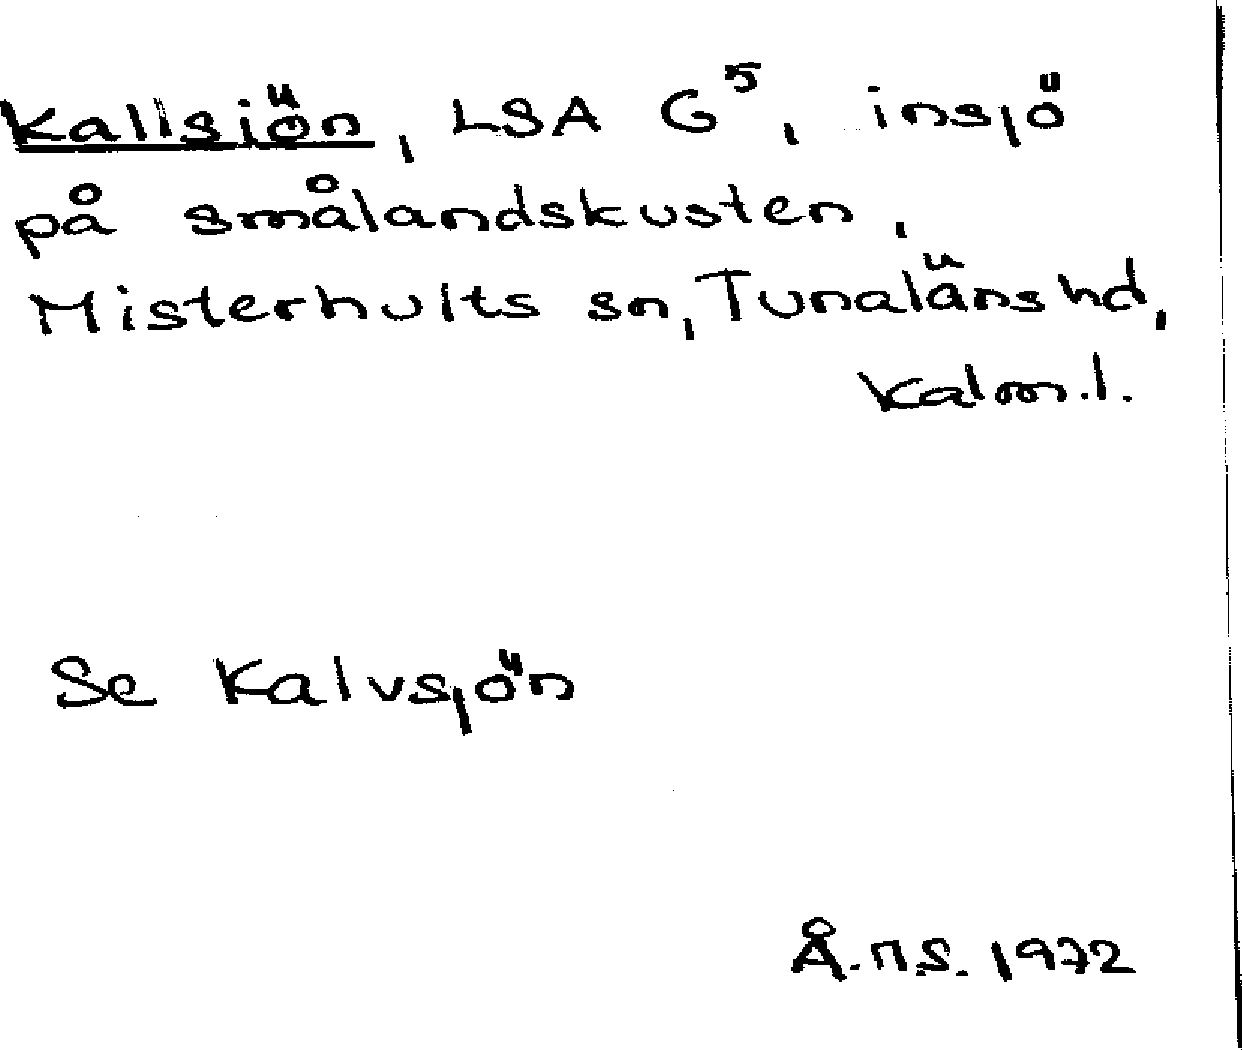 Kallsjön, LSA G⁵, insjö
på smålandskusten,
Misterhults sn, Tunaläns hd,
Kalm.l.
Se Kalvsjön
Å.N.S. 1972